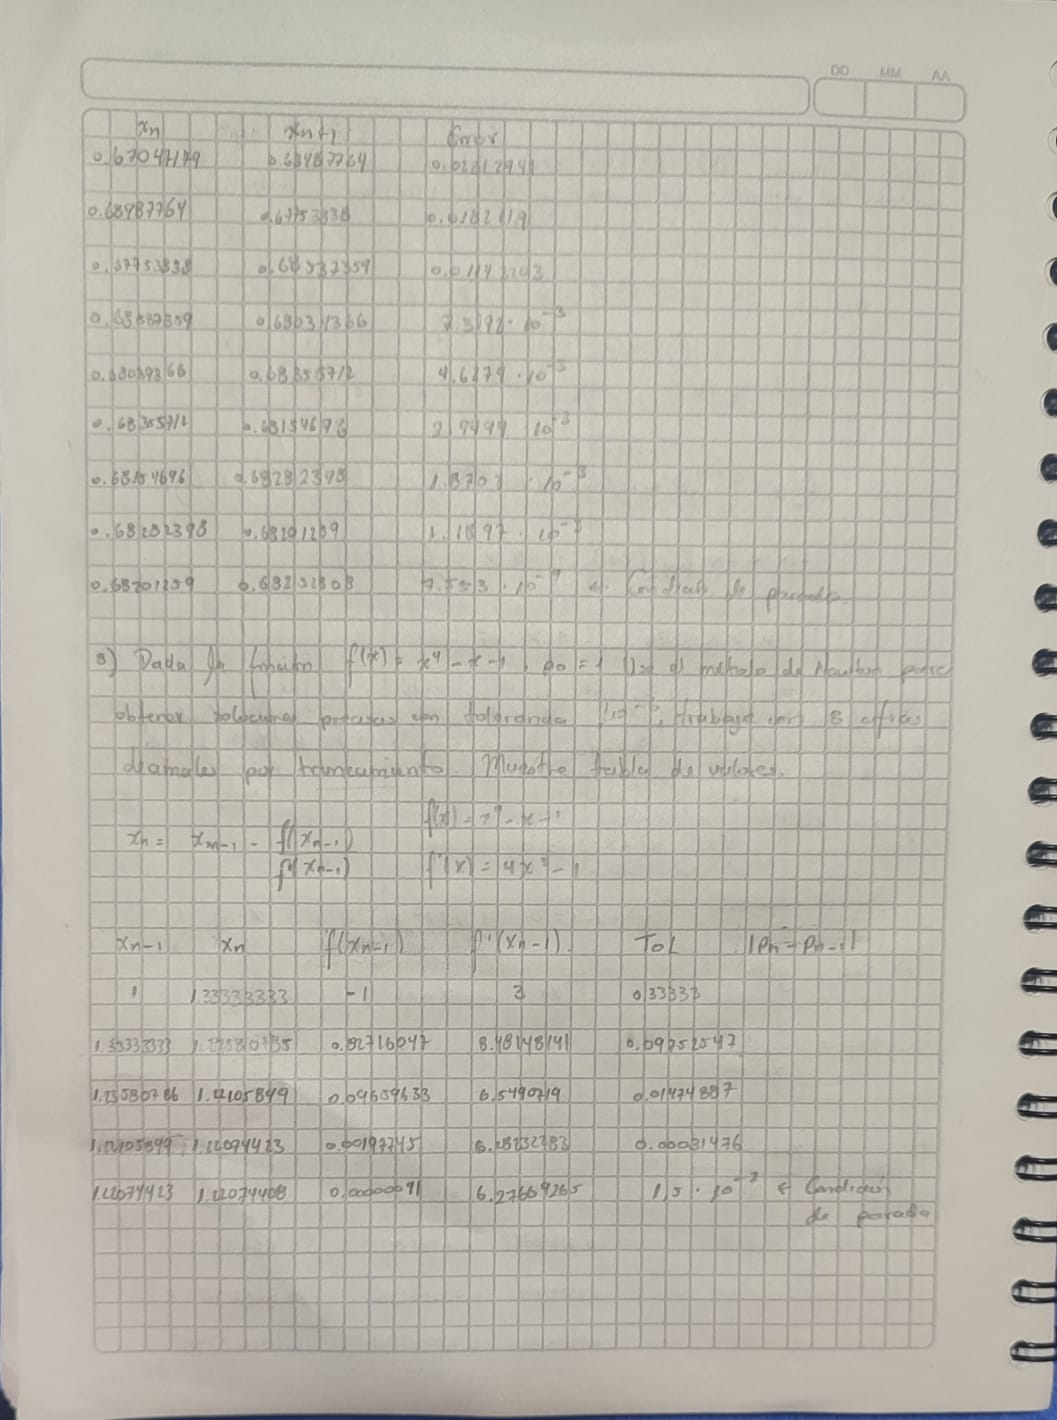 DD MM AA
xn xn+1 Error
0.67047179 0.68487764 0.02812941
0.68487764 0.67753838 0.0182119
0.67753838 0.68237359
0.68039366 7.3192 · 10⁻³
0.68039366 0.68355712 4.6279 · 10⁻³
0.68355712 0.68154696 2.9494 10⁻³
0.68154696 0.68282398 1.8702 · 10⁻³
0.68282398 0.68201259 1.1897 · 10⁻³
0.68201259 7.553 · 10⁻⁴ ← Condición de parada
3) Dada la función f(x) = x⁴ - x - 1, p0 = 1 Use el método de Newton para
obtener soluciones precisas con tolerancia 10⁻⁶, trabaje con 8 cifras
decimales por truncamiento. Muestre tabla de valores.
f(x) = x⁴ - x - 1
xn = xn-1 - f(xn-1)
f'(xn-1) f'(x) = 4x³ - 1
xn-1 xn f(xn-1) f'(xn-1) TOL |Pn - Pn-1|
1 1.33333333 -1 3 0.33333
1.33333333 1.23580785 0.82716047 8.48148141 0.09752547
1.23580786 1.22105899 0.09659633 6.5490719 0.01474887
1.22105899 1.22074423 0.00197745 6.28232283 0.00031476
1.22074423 1.22074408 0.00000091 6.27669265 1,5 · 10⁻⁷ ← Condición
de parada